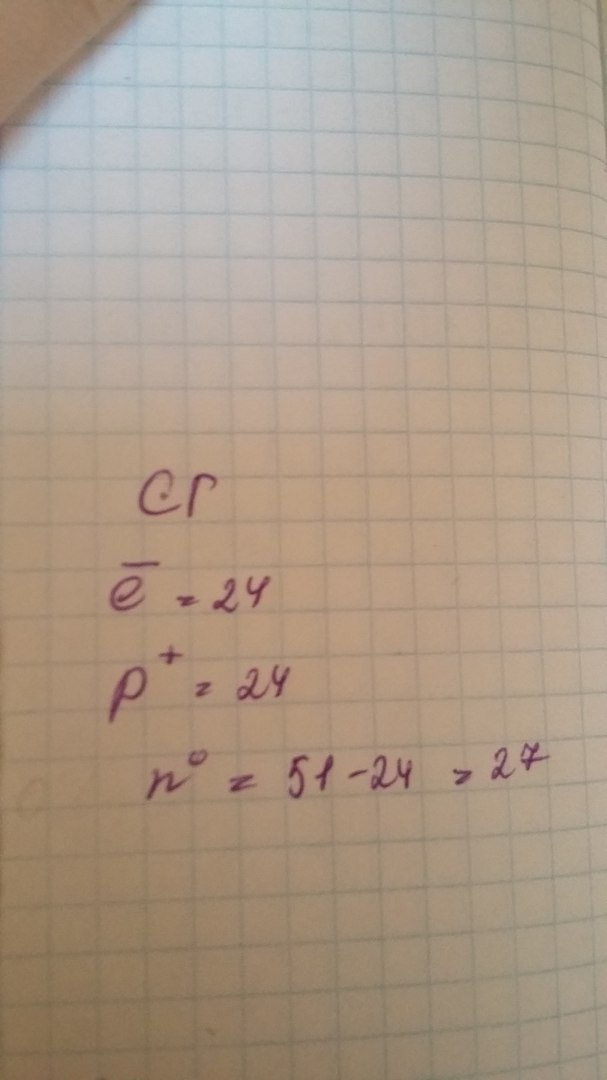 Cr
e̅ = 24
p⁺ = 24
n⁰ = 51 - 24 = 27